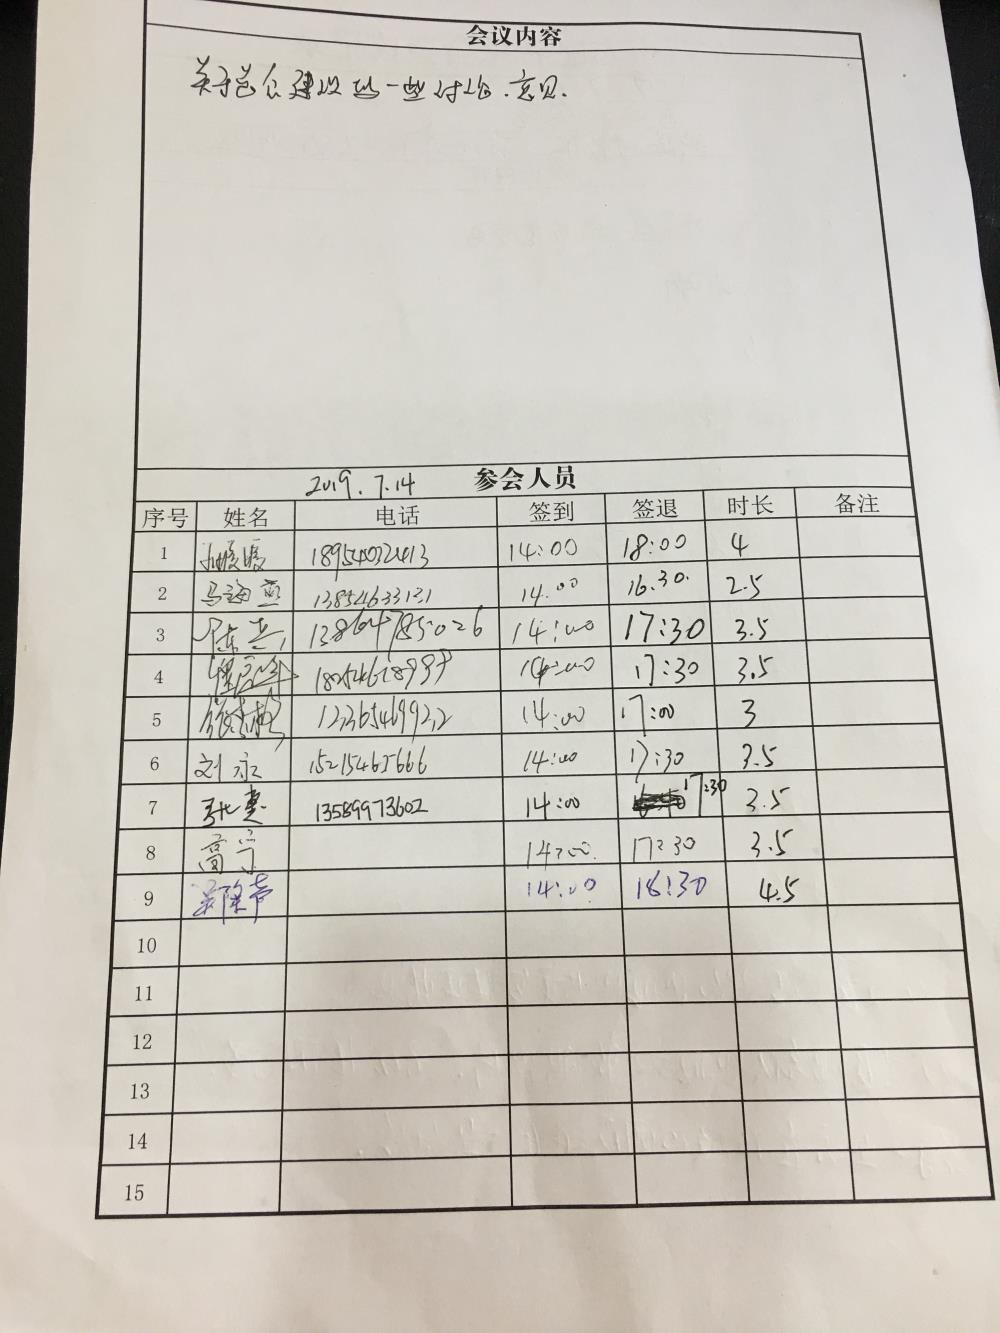 会议内容
关于总会建设的一些讨论.意见.
2019.7.14 参会人员
序号 姓名 电话 签到 签退 时长 备注
1 18954032413 14:00 18:00 4
2 马海燕 13854633131 14.00 16.30. 2.5
3 13864785026 14:00 17:30 3.5
4 14:00 17:30 3.5
5 14:00 17:00 3
6 刘永 15215465666 14:00 17:30 3.5
7 张惠 13589973602 14:00 17:30 3.5
8 高宁 14:00. 17:30 3.5
9 14:00 18:30 4.5
10
11
12
13
14
15